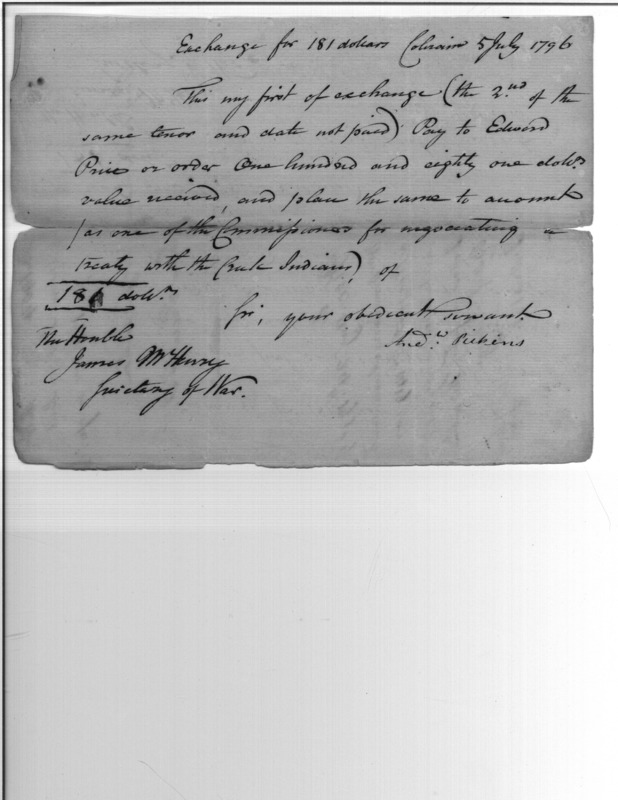 Exchange for 181 dollars Colrain 5 July 1796
This my first of exchange (the 2.nd of the
same tenor and date not paid) Pay to Edward
Price or order One hundred and eighty one doll.s
value received, and place the same to account
(as one of the Commissioners for negociating a
treaty with the Creek Indians), of
181 doll.s
Sir, your obedient servant.
And.w Pickens
The Honble
James McHenry
Secretary of War.